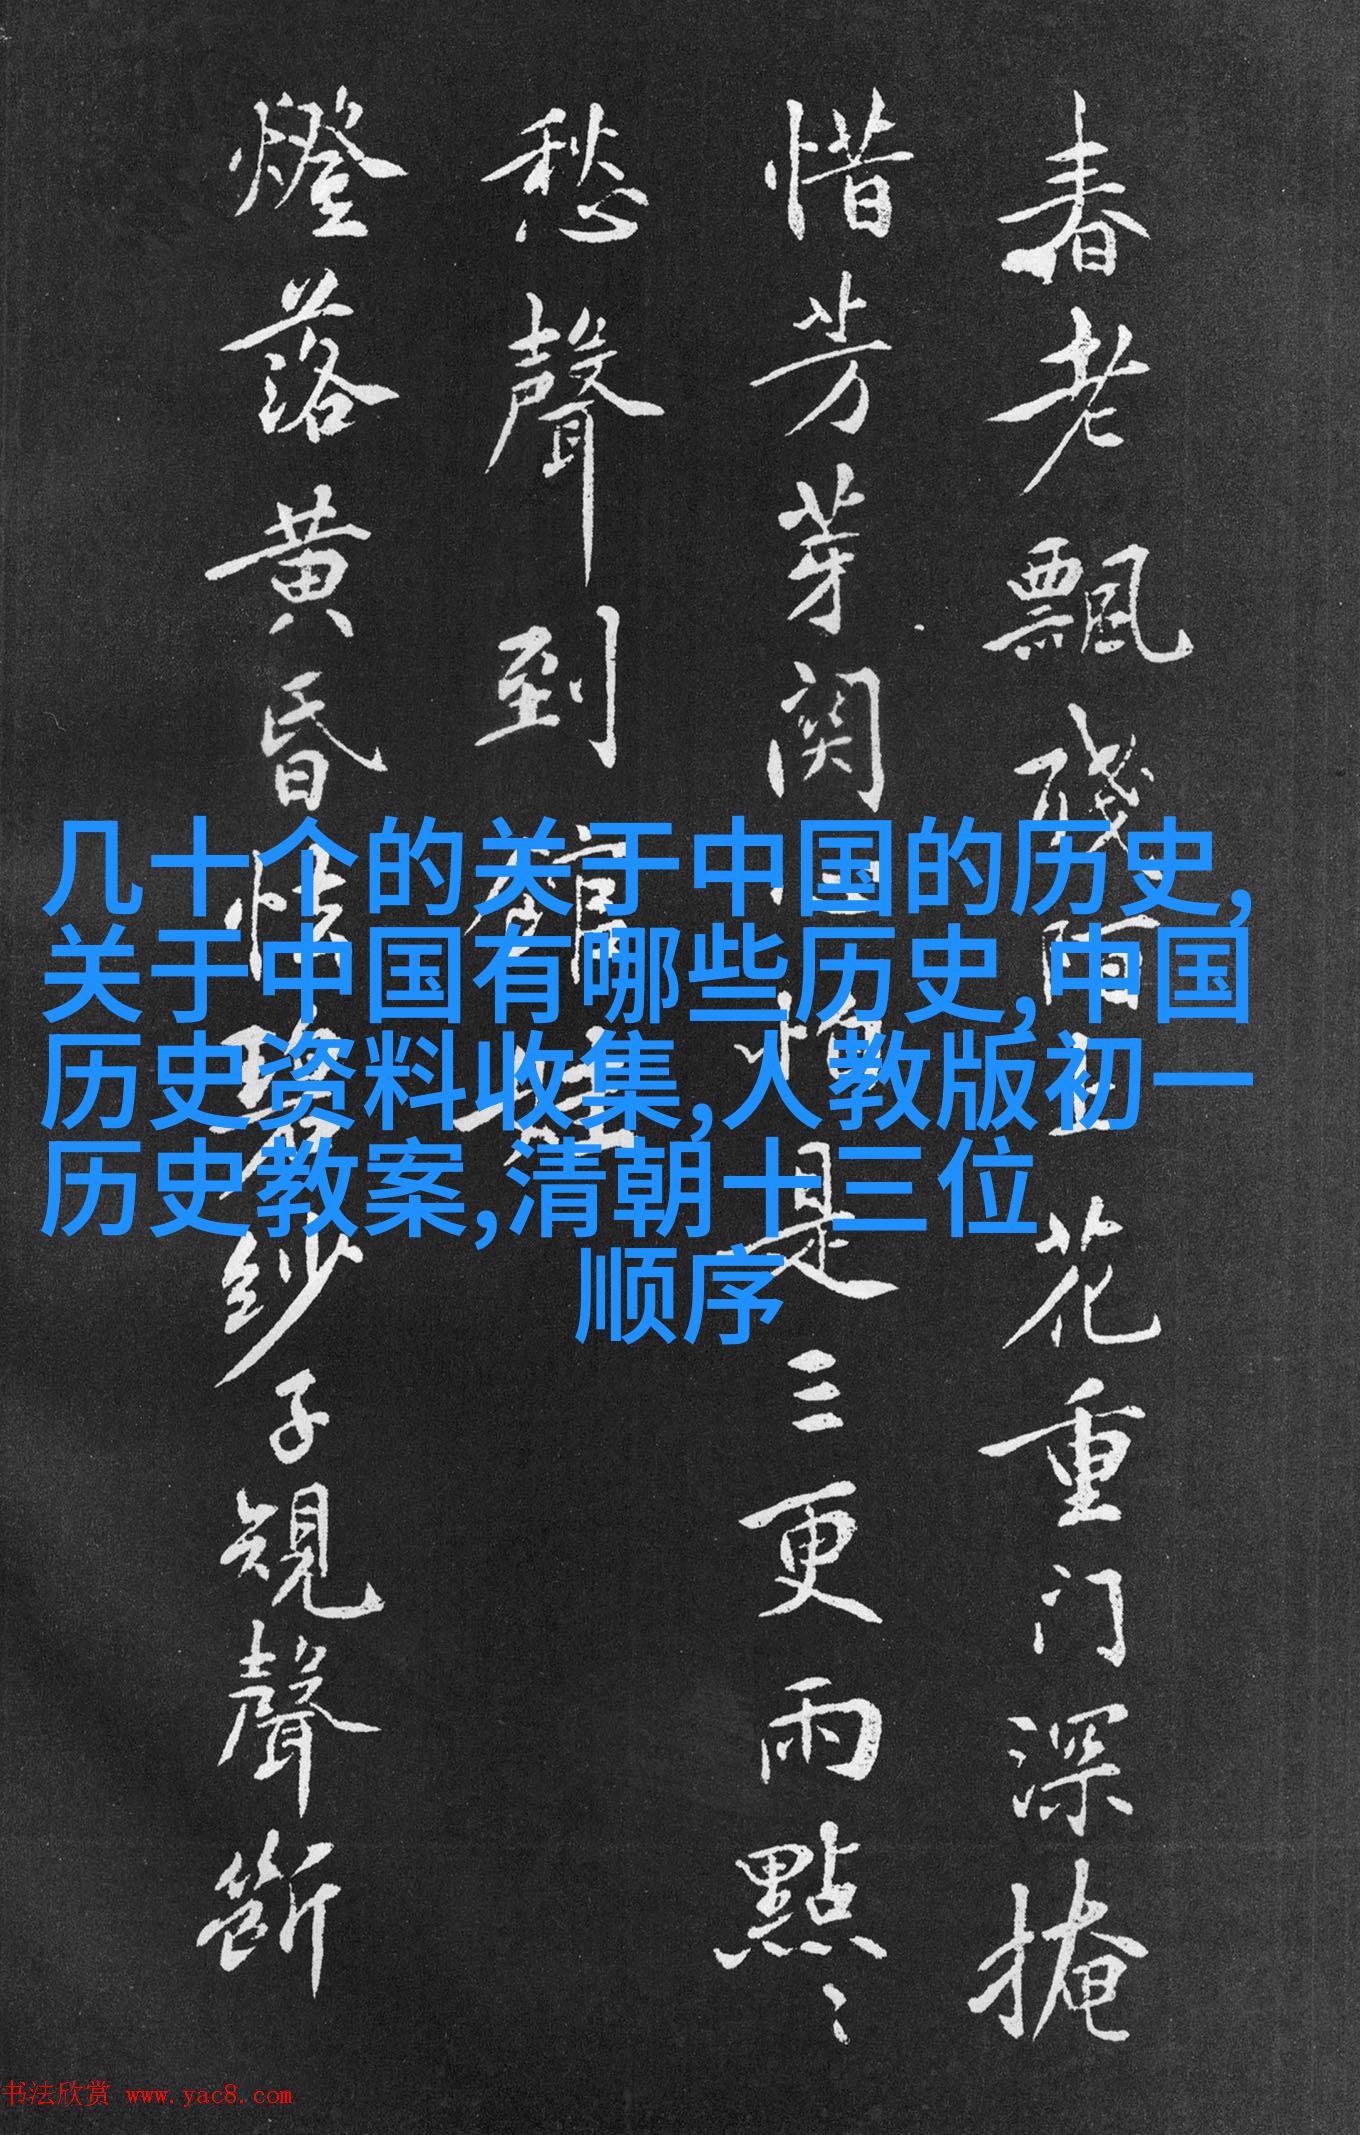 春老飄殘陌上花重门深掩
惜芳芽関心怕是三更雨點〻
愁聲到館娃
燈落黄昏怯碧紗子規聲斷
几十个的关于中国的历史,
关于中国有哪些历史,中国
历史资料收集,人教版初一
历史教案,清朝十三位
顺序
书法欣赏 www.yac8.com